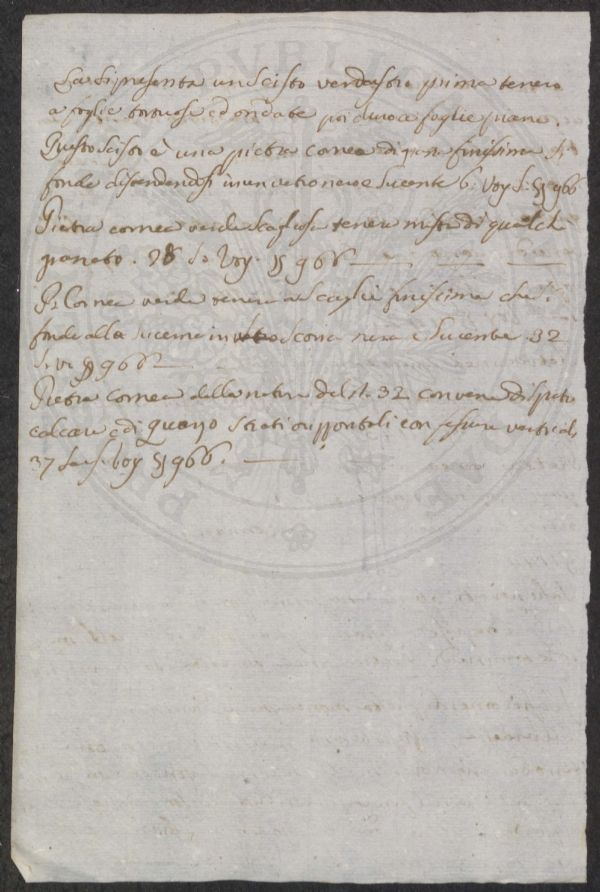 si presenta un scisto verdastro prima tenero
a foglie tortuose ed ondate poi duro a foglie piane.
Questo scisto è una pietra cornea di pasta finissima si
fonde distendendosi in un vetro nero e lucente 6. Voy. §§ 966
Pietra cornea verde scagliosa tenera mista di qualche
28 Sa Voy. §§ 966
P. Cornea verde tenera a scaglie finissime che
fonde alla lucerna in scoria nera e lucente 32
§§ 966
Pietra cornea della natura del n. 32 con vene di spato
calcare e di quarzo strati orizzontali con fessure verticali
37 Saus. Voy §§ 966.